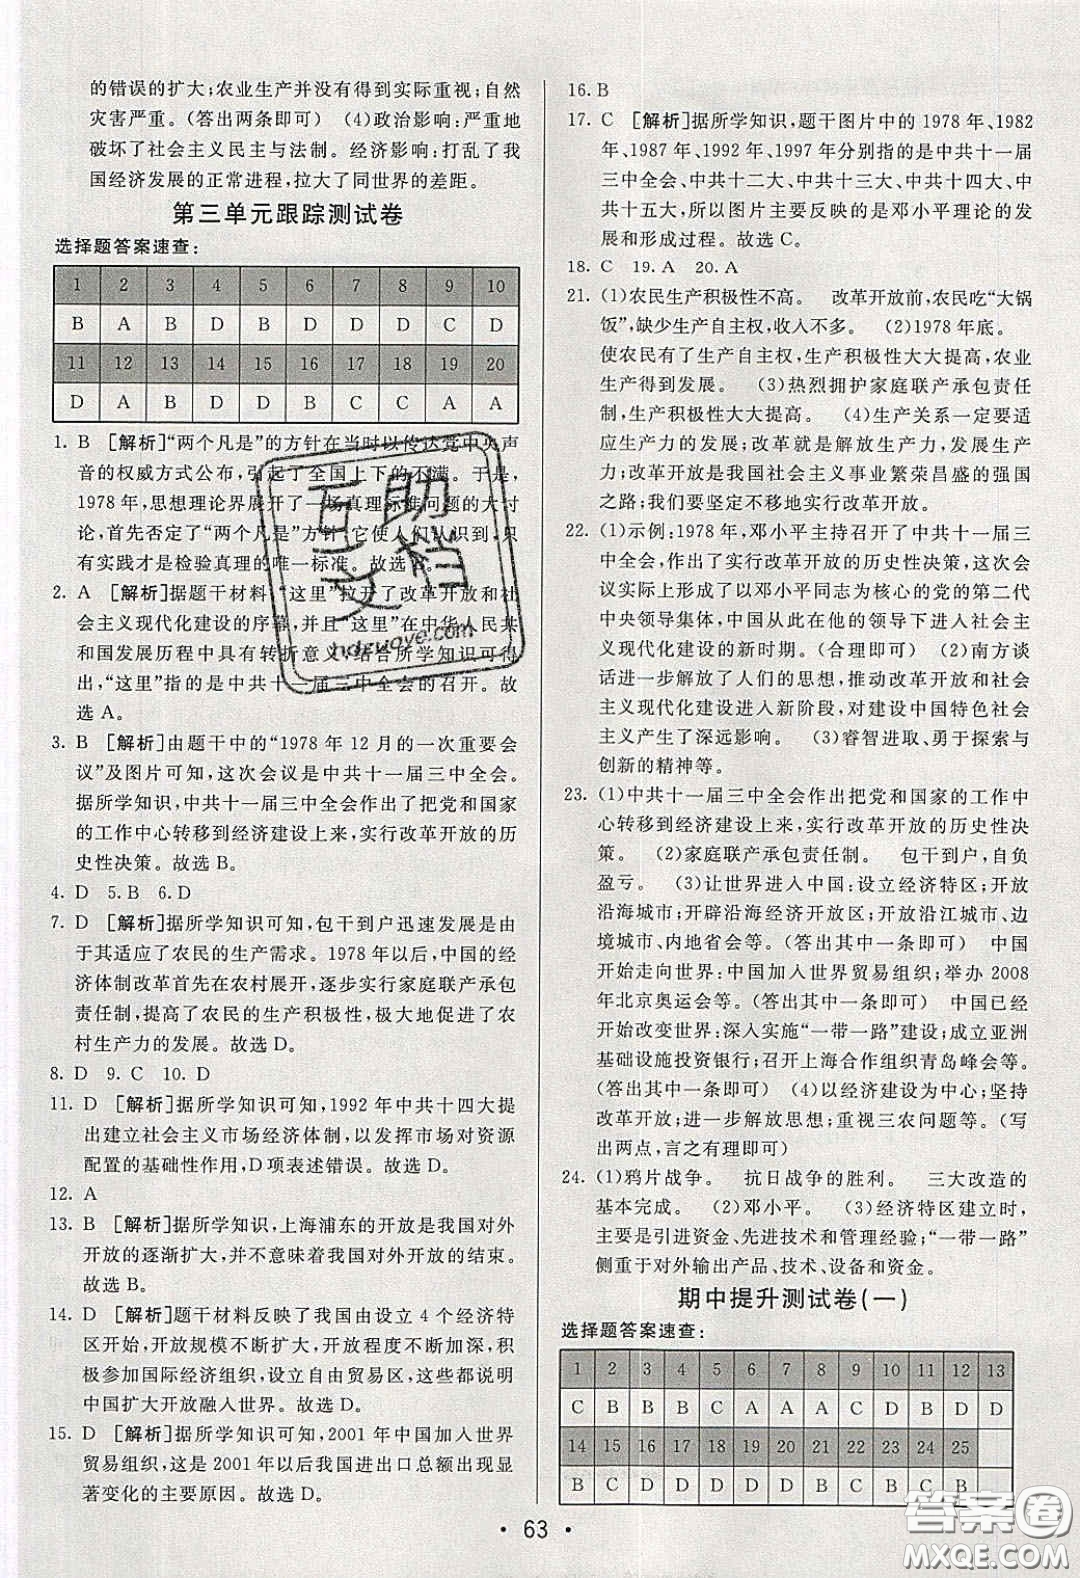 的错误的扩大;农业生产并没有得到实际重视;自然
灾害严重。(答出两条即可) (4)政治影响:严重地
破坏了社会主义民主与法制。经济影响:打乱了我
国经济发展的正常进程,拉大了同世界的差距。
第三单元跟踪测试卷
选择题答案速查:
1 2 3 4 5 6 7 8 9 10
B A B D B D D D C D
11 12 13 14 15 16 17 18 19 20
D A B D D B C C A A
1. B [解析]“两个凡是”的方针在当时以传达党中央声
音的权威方式公布,引起了全国上下的不满。于是,
1978年,思想理论界展开了一场真理标准问题的大讨
论,首先否定了“两个凡是”方针,它使人们认识到,只
有实践才是检验真理的唯一标准。故选B。
2. A [解析]据题干材料“这里”拉开了改革开放和社
会主义现代化建设的序幕,并且“这里”在中华人民共
和国发展历程中具有转折意义,结合所学知识可得
出,“这里”指的是中共十一届三中全会的召开。故
选A。
3. B [解析]由题干中的“1978年12月的一次重要会
议”及图片可知,这次会议是中共十一届三中全会。
据所学知识,中共十一届三中全会作出了把党和国家
的工作中心转移到经济建设上来,实行改革开放的历
史性决策。故选B。
4. D 5. B 6. D
7. D [解析]据所学知识可知,包干到户迅速发展是由
于其适应了农民的生产需求。1978年以后,中国的经
济体制改革首先在农村展开,逐步实行家庭联产承包
责任制,提高了农民的生产积极性,极大地促进了农
村生产力的发展。故选D。
8. D 9. C 10. D
11. D [解析]据所学知识可知,1992年中共十四大提
出建立社会主义市场经济体制,以发挥市场对资源
配置的基础性作用,D项表述错误。故选D。
12. A
13. B [解析]据所学知识,上海浦东的开放是我国对外
开放的逐渐扩大,并不意味着我国对外开放的结束。
故选B。
14. D [解析]题干材料反映了我国由设立4个经济特
区开始,开放规模不断扩大,开放程度不断加深,积
极参加国际经济组织,设立自由贸易区,这些都说明
中国扩大开放融入世界。故选D。
15. D [解析]据所学知识可知,2001年中国加入世界
贸易组织,这是2001年以后我国进出口总额出现显
著变化的主要原因。故选D。
16. B
17. C [解析]据所学知识,题干图片中的1978年、1982
年、1987年、1992年、1997年分别指的是中共十一届
三中全会、中共十二大、中共十三大、中共十四大、中
共十五大,所以图片主要反映的是邓小平理论的发
展和形成过程。故选C。
18. C 19. A 20. A
21. (1)农民生产积极性不高。 改革开放前,农民吃“大锅
饭”,缺少生产自主权,收入不多。 (2)1978年底。
使农民有了生产自主权,生产积极性大大提高,农业
生产得到发展。 (3)热烈拥护家庭联产承包责任
制,生产积极性大大提高。 (4)生产关系一定要适
应生产力的发展;改革就是解放生产力,发展生产
力;改革开放是我国社会主义事业繁荣昌盛的强国
之路;我们要坚定不移地实行改革开放。
22. (1)示例:1978年,邓小平主持召开了中共十一届三
中全会,作出了实行改革开放的历史性决策,这次会
议实际上形成了以邓小平同志为核心的党的第二代
中央领导集体,中国从此在他的领导下进入社会主
义现代化建设的新时期。(合理即可) (2)南方谈
话进一步解放了人们的思想,推动改革开放和社会
主义现代化建设进入新阶段,对建设中国特色社会
主义产生了深远影响。 (3)睿智进取、勇于探索与
创新的精神等。
23. (1)中共十一届三中全会作出把党和国家的工作中
心转移到经济建设上来,实行改革开放的历史性决
策。 (2)家庭联产承包责任制。 包干到户,自负
盈亏。 (3)让世界进入中国:设立经济特区;开放
沿海城市;开辟沿海经济开放区;开放沿江城市、边
境城市、内地省会等。(答出其中一条即可) 中国
开始走向世界:中国加入世界贸易组织;举办2008
年北京奥运会等。(答出其中一条即可) 中国已经
开始改变世界:深入实施“一带一路”建设;成立亚洲
基础设施投资银行;召开上海合作组织青岛峰会等。
(答出其中一条即可) (4)以经济建设为中心;坚持
改革开放;进一步解放思想;重视三农问题等。(写
出两点,言之有理即可)
24. (1)鸦片战争。 抗日战争的胜利。 三大改造的
基本完成。 (2)邓小平。 (3)经济特区建立时,
主要是引进资金、先进技术和管理经验;“一带一路”
侧重于对外输出产品、技术、设备和资金。
期中提升测试卷(一)
选择题答案速查:
1 2 3 4 5 6 7 8 9 10 11 12 13
C B B B C A A A C D B D D
14 15 16 17 18 19 20 21 22 23 24 25
B C D D D D B B A C B D
• 63 •
互助文档
hdzuoye.com
答案圈
MXQE.COM